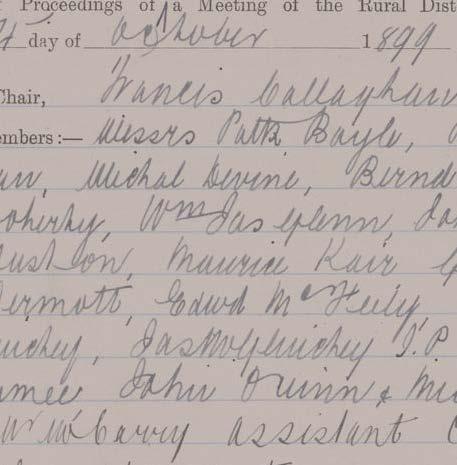 Proceedings of a Meeting of the Rural Dist
day of October 1899
Chair, Francis Callaghan
embers:— Messrs Patk Boyle,
an, Michal Devine, Bernd
oherty, Wm Jas Glenn, Ja
uston, Maurice Kair
ermott, Edwd McFeily,
uchey, Jas McGlinchey J.P
amee John Quinn & Mi
assistant C